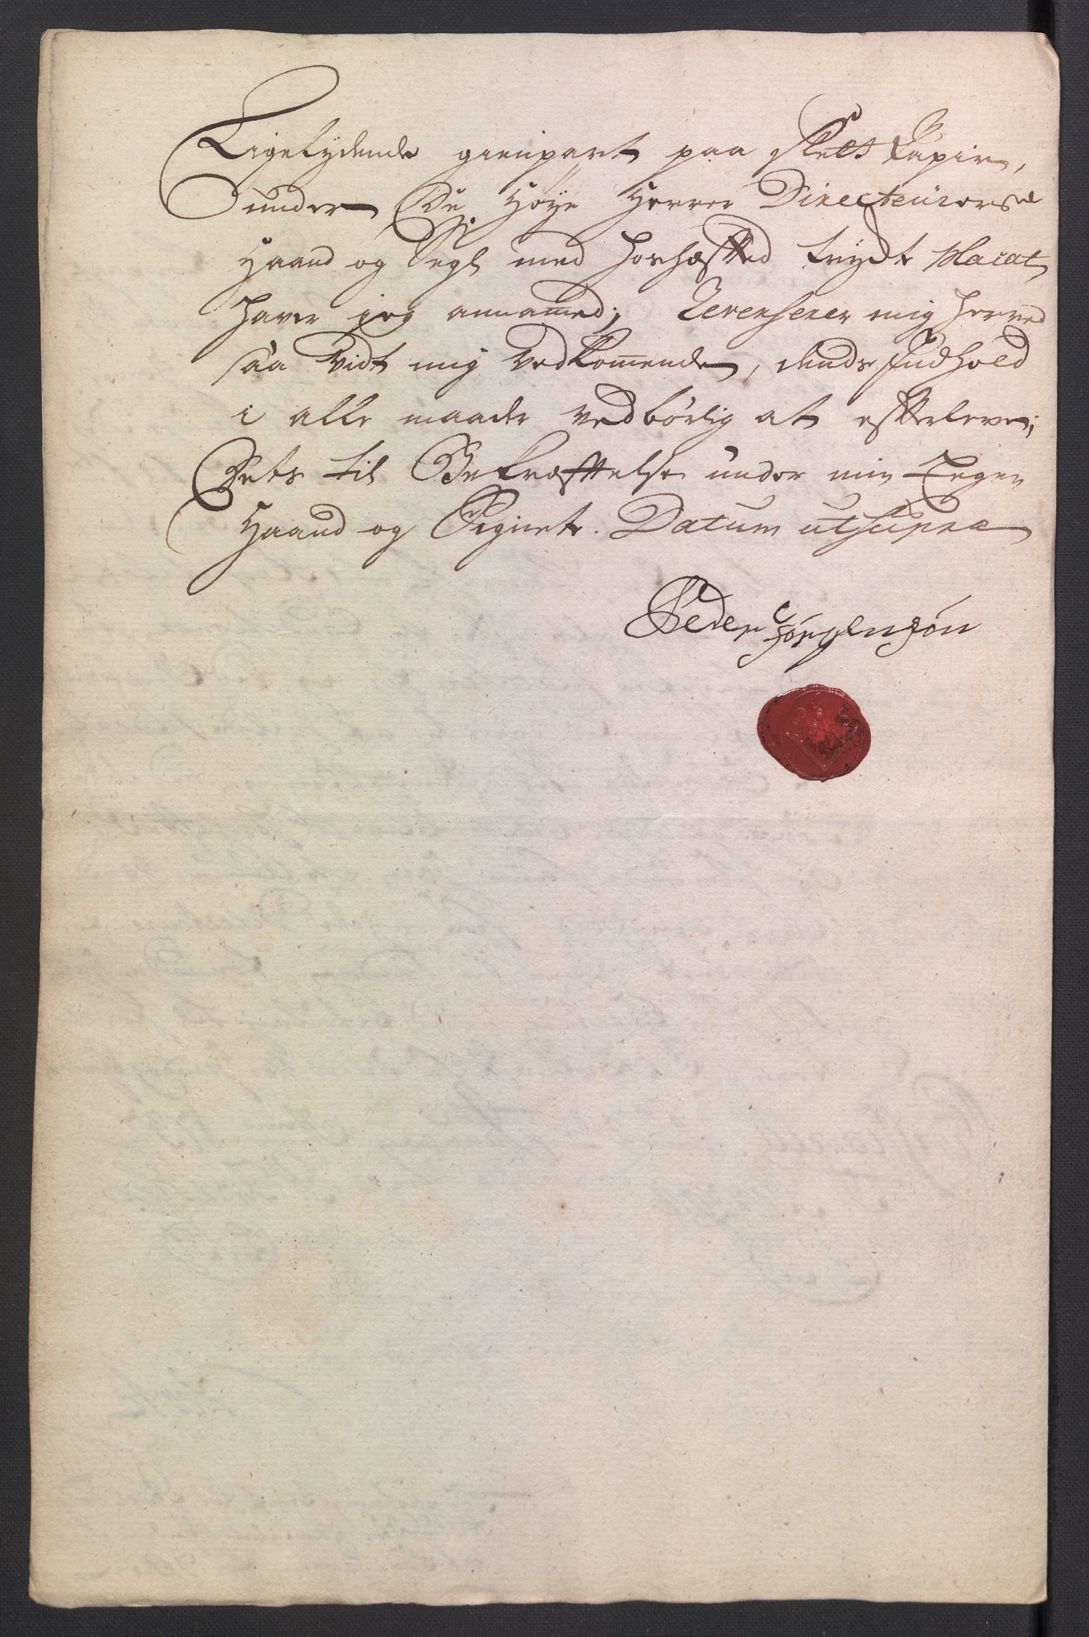 Ligelydende gienpart paa slett Papir,
under De Høye Herrer Directeurers
Haand og Segl med hoshæftted trÿdt Placat,
haver jeg annammed; Reverserer mig herved
saa vidt mig vedkommende, dends Indhold
i alle maader vedbørlig at effterleve;
Dets til Bekræfttelse under min Egen
Haand og Signete. Datum ut supra
Peder Jørgensøn